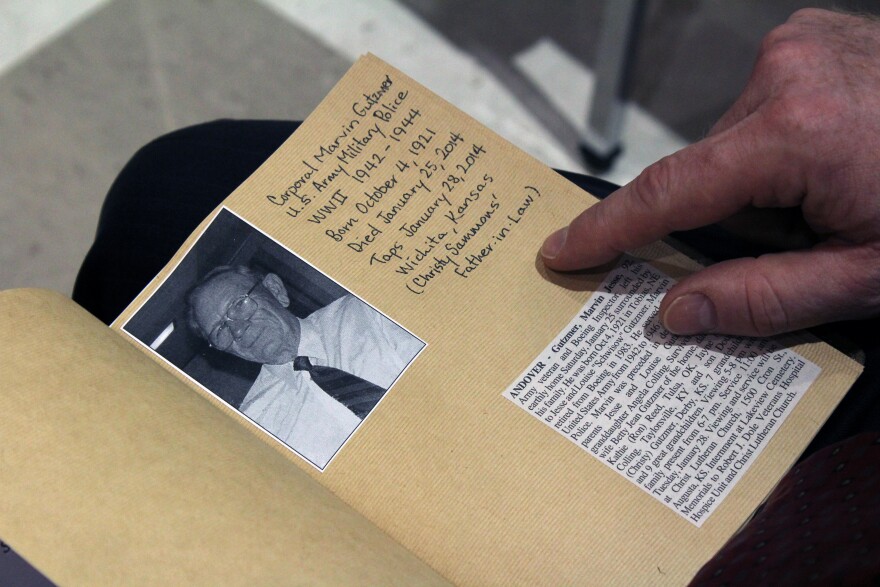 Corporal Marvin Gutzmer
U.S Army Military Police
WWII 1942-1944
Born October 4, 1921
Died January 25, 2014
Taps January 28, 2014
Wichita, Kansas
(Christy Sammons'
Father-in-Law)
ANDOVER - Gutzmer, Marvin Jesse,
Army veteran and Boeing Inspector, left his
earthly home Saturday, January 25 surrounded by
his family. He was born Oct 4, 1921 in Tobias, NE
to Jesse and Louise "Schwisow" Gutzmer. Marvin
retired from Boeing in 1983. He
United States Army from 1942 to
Police. Marvin was preceded
parents Jesse and Louise
granddaughter Angela Colling. Surv
wife Betty Jean Gutzmer of the home
Kathe (Ron) Reed, Tulsa, OK, Jaye
Colling, Taylorsville, KY and son
(Christy) Gutzmer, Derby, KS,
and 9 great grandchildren. Viewing 5-8
family present from 6-7 pm. Service 11:00
Tuesday, January 28. Viewing and service
at Christ Lutheran Church, 1500 Cron St.,
Augusta, KS. Internment at Lakeview Cemetery.
Memorials to Robert J. Dole Veterans Hospital
Hospice Unit and Christ Lutheran Church.